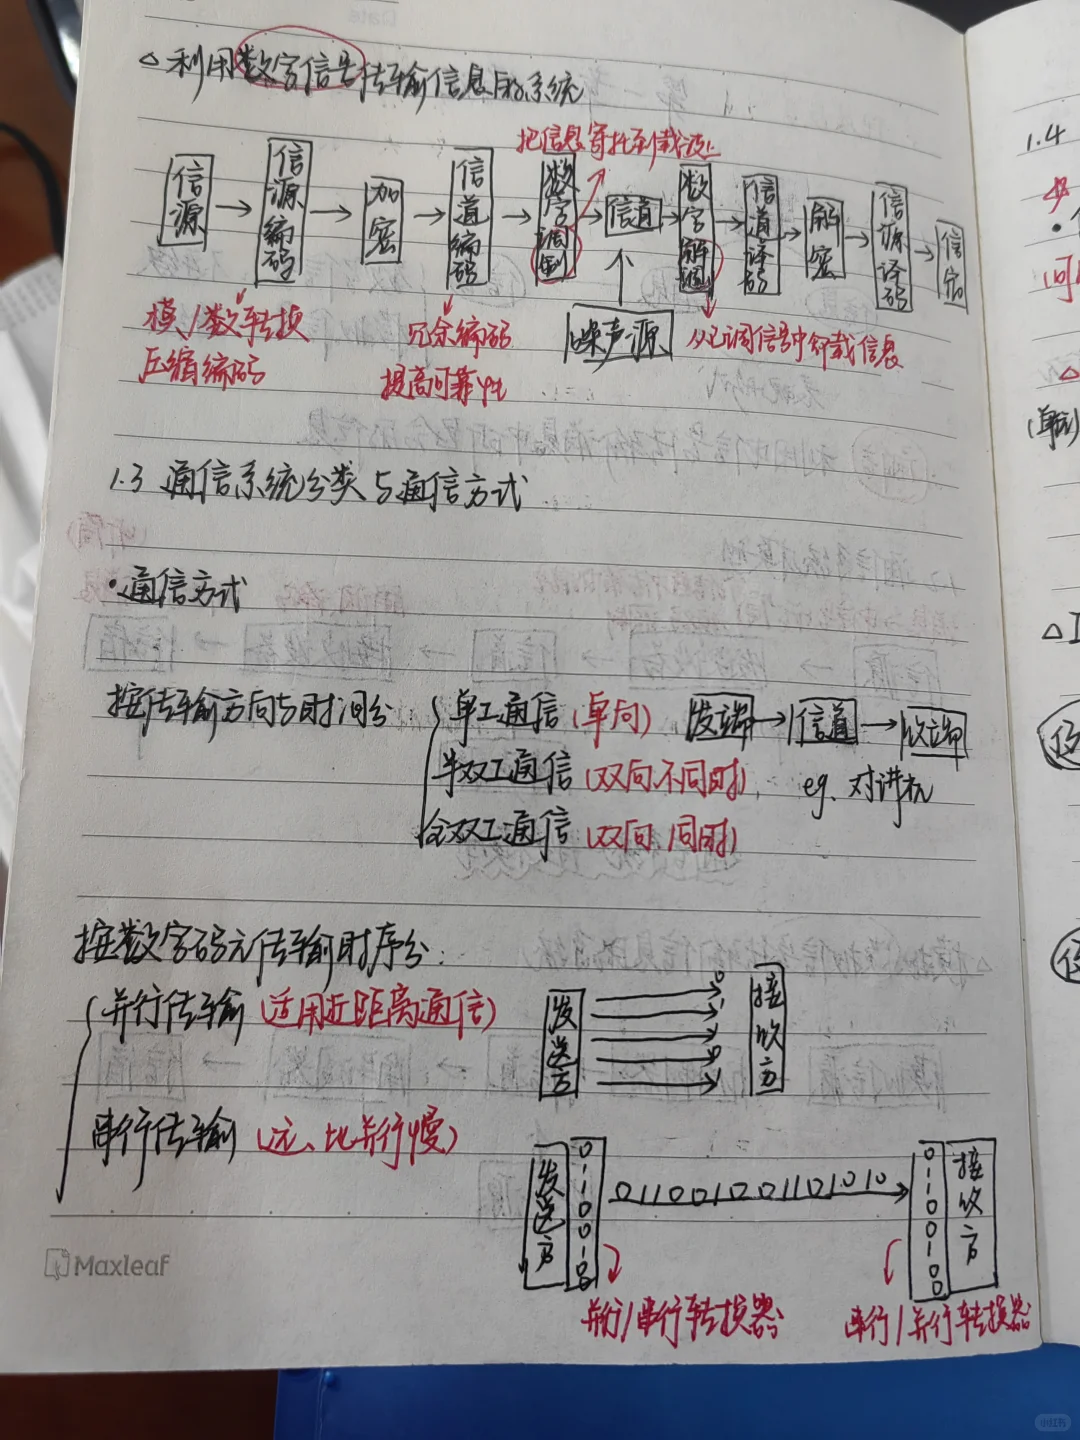 △利用数字信号传输信息的系统
把信息寄托到载波上
信源 → 信源编码 → 加密 → 信道编码 → 数字调制 → 信道 → 数字解调 → 信道译码 → 解密 → 信源译码 → 信宿
模/数转换
压缩编码
冗余编码
提高可靠性
噪声源
从已调信号中卸载信息
1.3 通信系统分类与通信方式
·通信方式
按传输方向与时间分
单工通信(单向) 发端 → 信道 → 收端
半双工通信(双向,不同时) eg. 对讲机
全双工通信(双向,同时)
按数字码元传输时序分:
并行传输(适用近距离通信)
发送方 接收方
串行传输(远、比并行慢)
发送方 接收方
并行/串行转换器 串行/并行转换器
Maxleaf
1.4
小红书